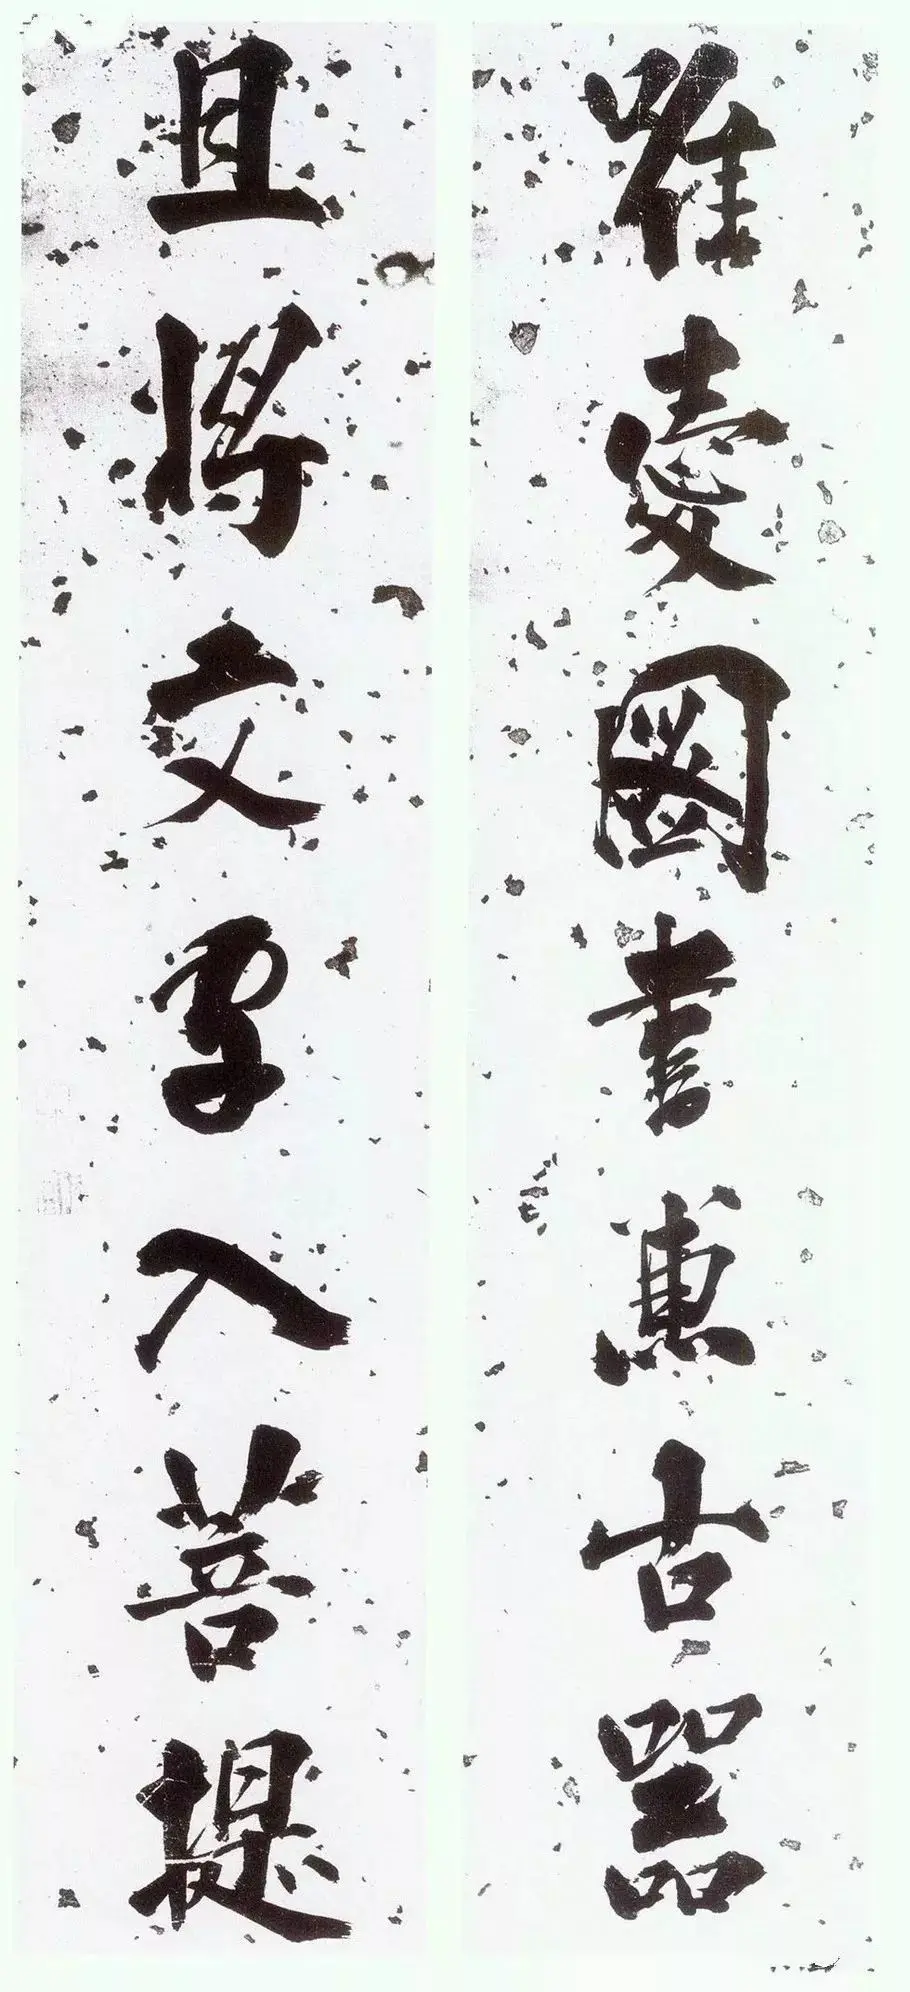 唯愛圖書兼古器
且將文字入菩提